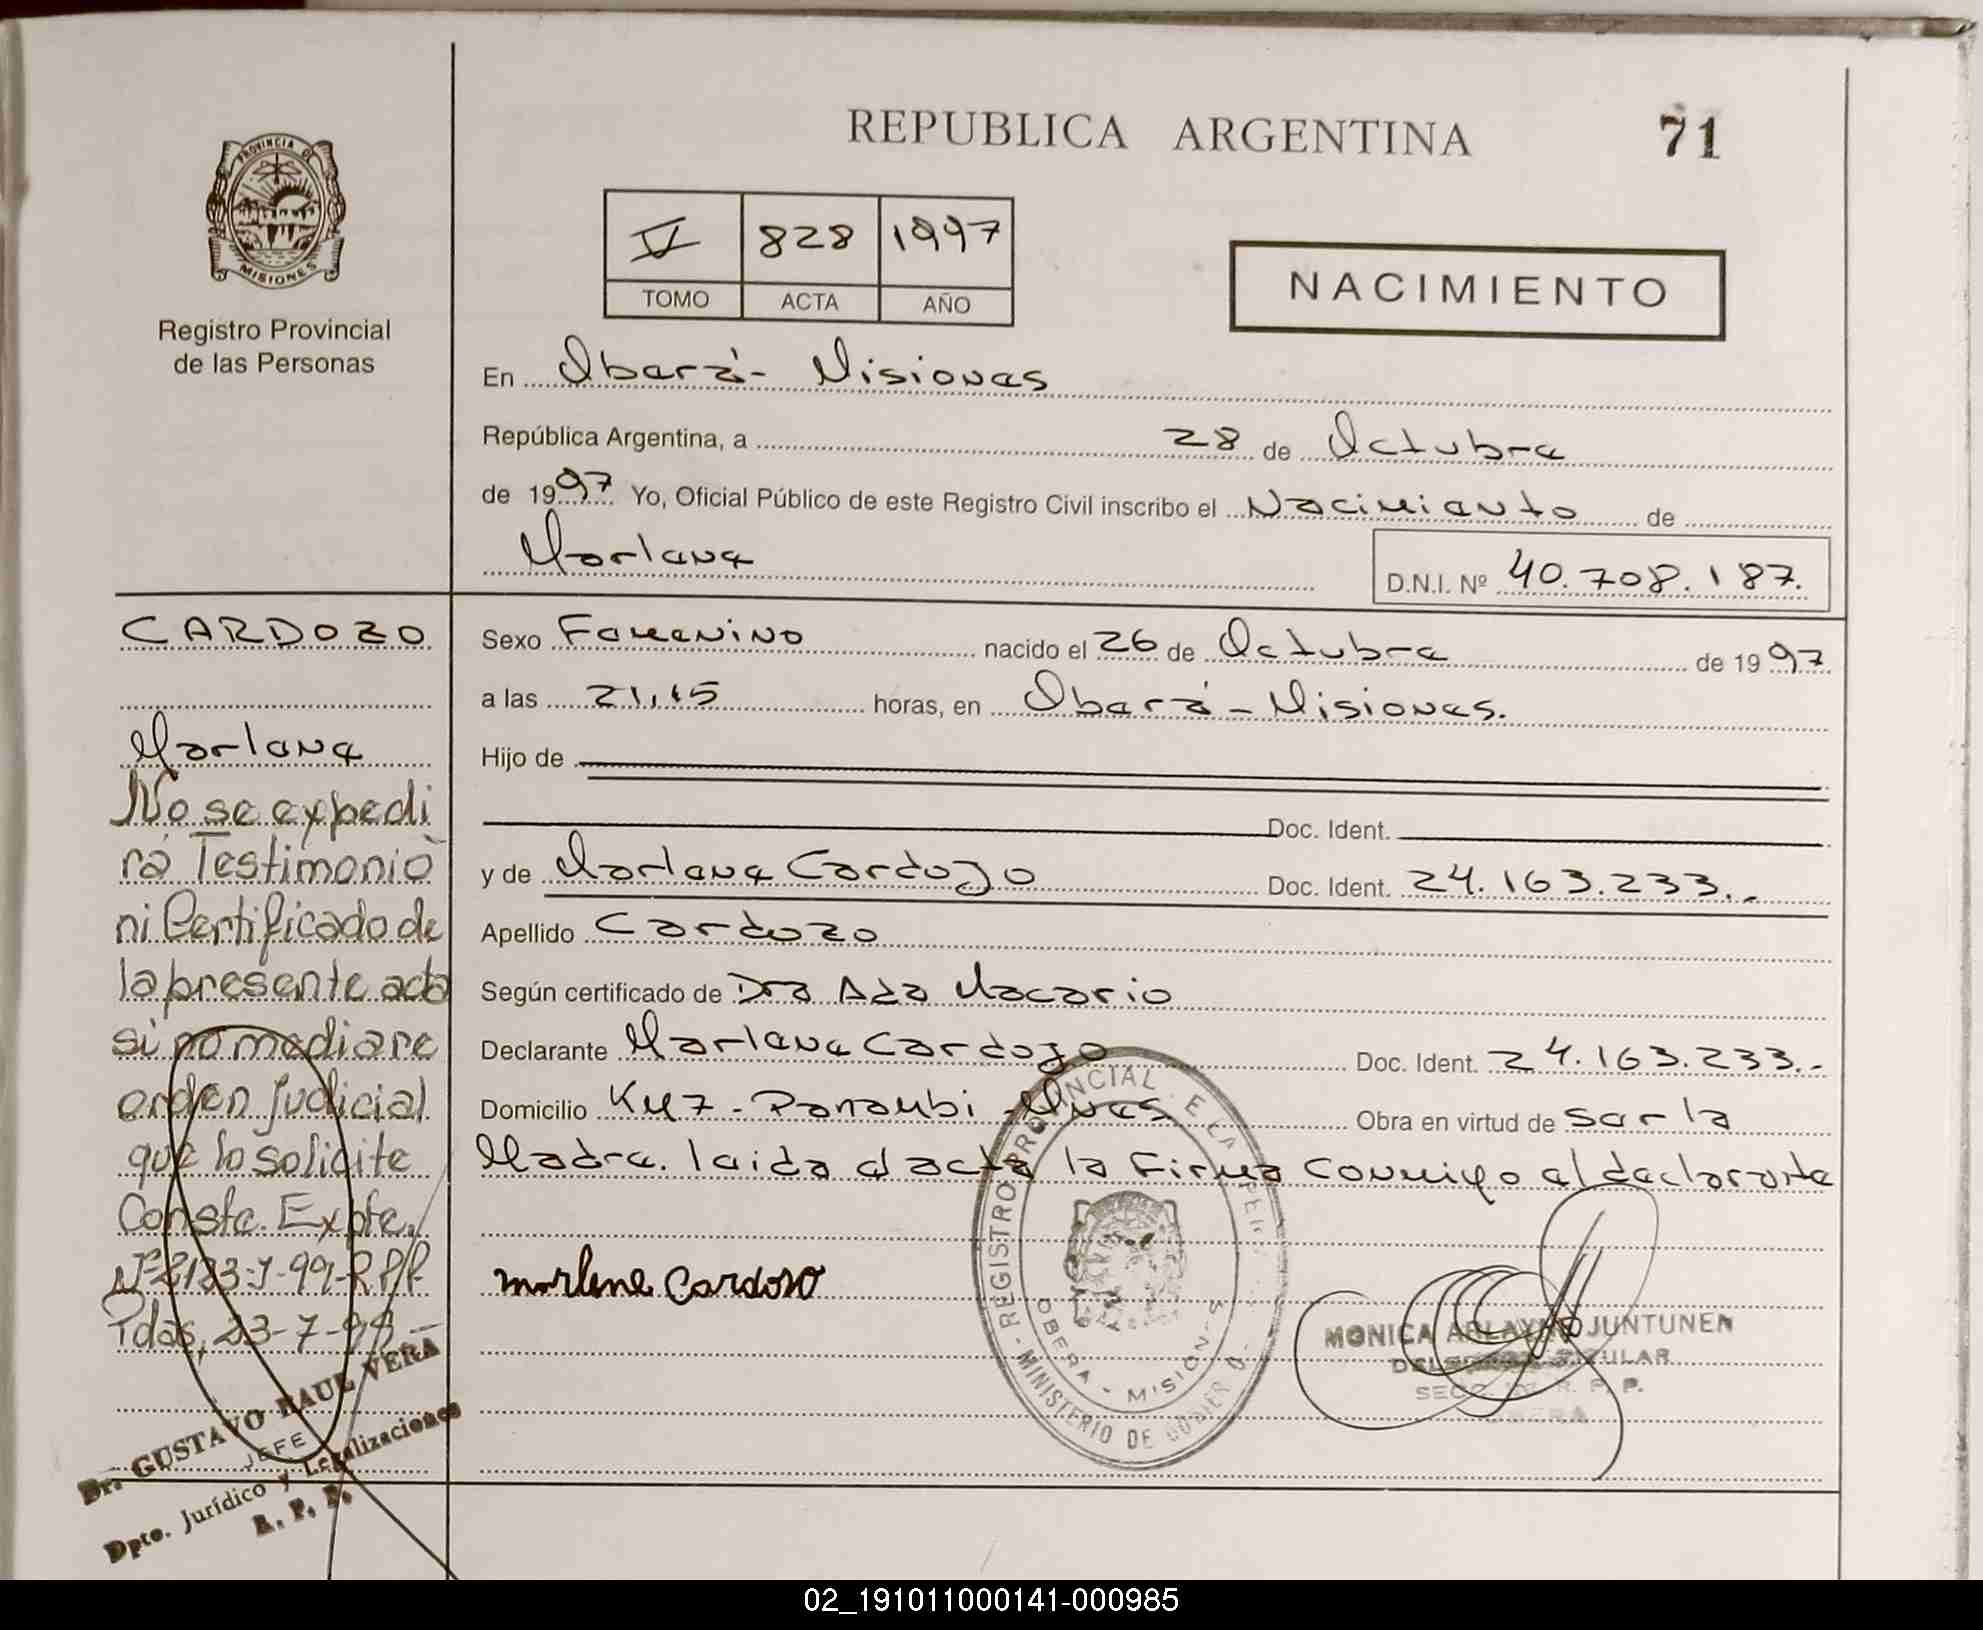 REPUBLICA ARGENTINA
71
PROVINCIA DE
MISIONES
Registro Provincial
de las Personas
V 828 1997
TOMO ACTA AÑO
NACIMIENTO
En Oberá - Misiones
República Argentina, a 28 de Octubre
de 1997 Yo, Oficial Público de este Registro Civil inscribo el Nacimiento de
Marlene
D.N.I. Nº 40.708.187.
CARDOZO
Marlene
No se expedi
rá Testimonio
ni Certificado de
la presente acta
si no mediare
orden judicial
que lo solicite
Conste. Expte.
Pdas, 23-7-99
Dr. GUSTAVO RAUL VERA
JEFE
Dpto. Jurídico y Legalizaciones
R. P. P.
Sexo Femenino nacido el 26 de Octubre de 1997
a las 21,15 horas, en Oberá - Misiones.
Hijo de
Doc. Ident.
y de Marlene Cardozo Doc. Ident. 24.163.233.-
Apellido Cardozo
Según certificado de Dra Ada Macario
Declarante Marlene Cardozo Doc. Ident. 24.163.233.-
Domicilio KM 7 - Panambi - Mnes Obra en virtud de ser la
Madre. leida el acta la firma conmigo el declarante
marlene Cardoso
REGISTRO PROVINCIAL DE LAS PER
MINISTERIO DE GOBIERNO
OBERA - MISIONES
MONICA JUNTUNEN
TITULAR
SECC. R. P. P.
OBERA
02_191011000141-000985